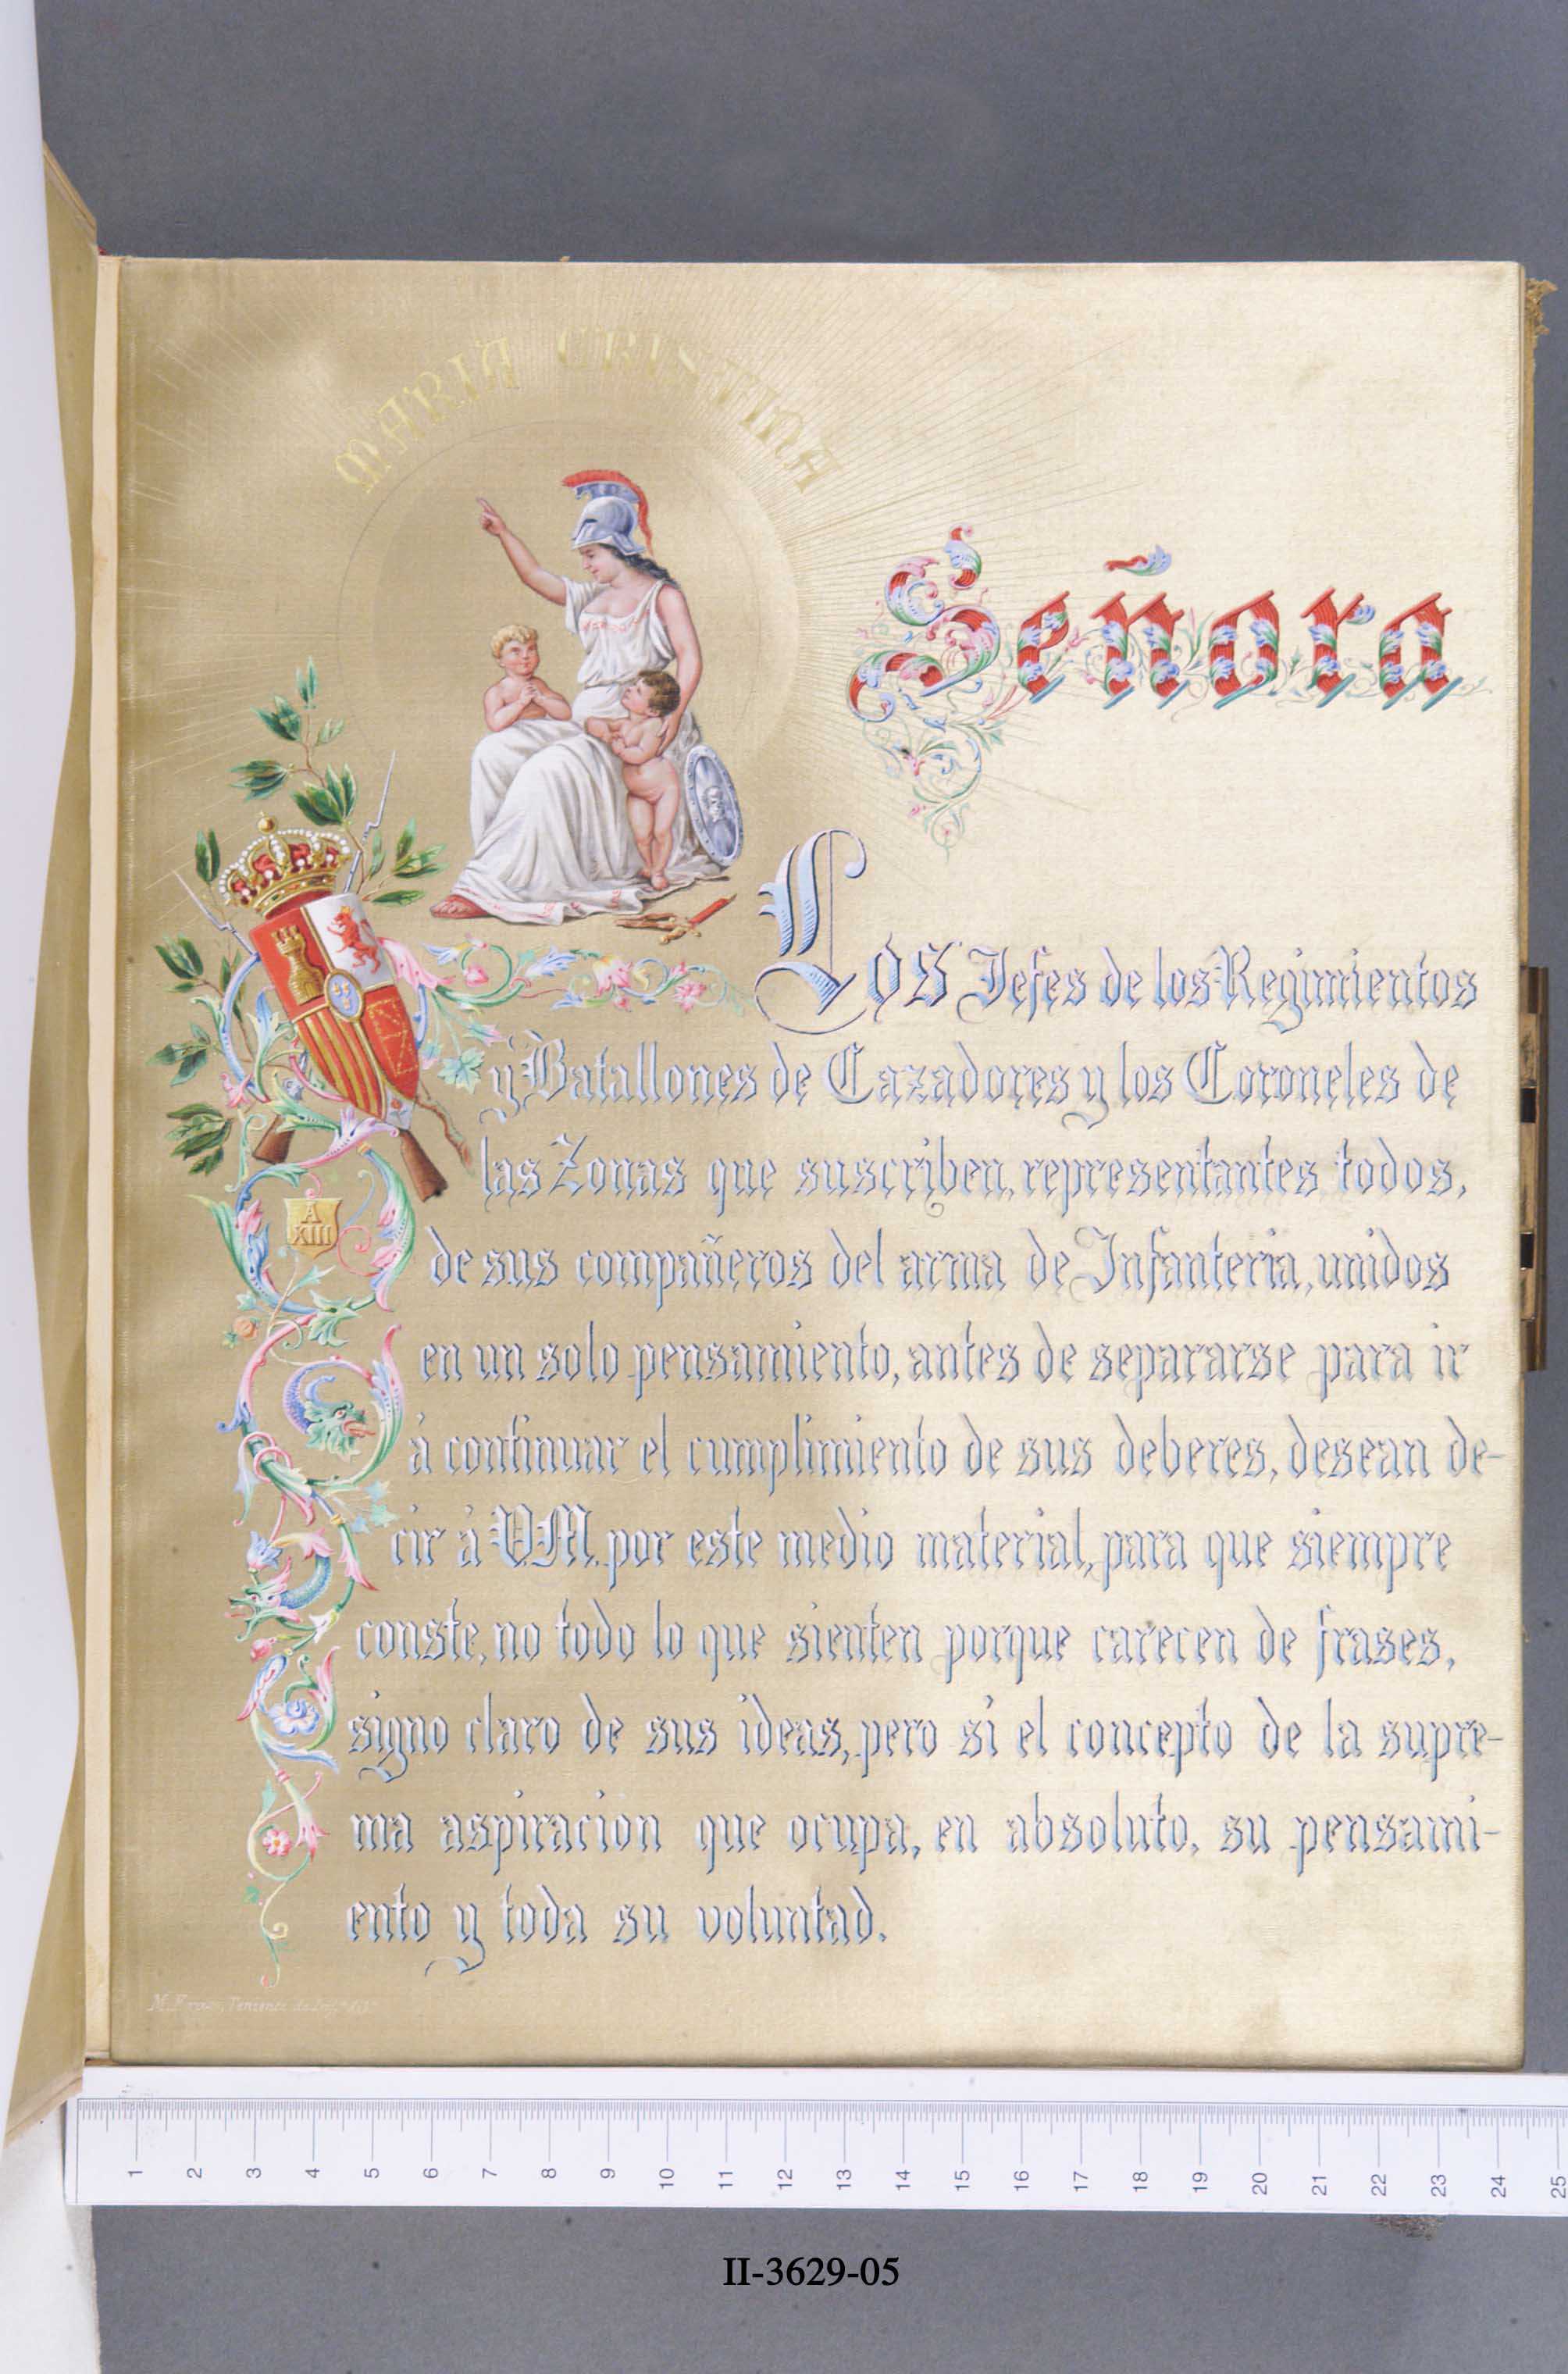 MARIA CRISTINA
Señora
Los Jefes de los Regimientos
y Batallones de Cazadores y los Coroneles de
las Zonas que suscriben, representantes todos,
de sus compañeros del arma de Infanteria, unidos
en un solo pensamiento, antes de separarse para ir
á continuar el cumplimiento de sus deberes, desean de-
cir á V.M. por este medio material, para que siempre
conste, no todo lo que sienten porque carecen de frases,
signo claro de sus ideas, pero si el concepto de la supre-
ma aspiracion que ocupa, en absoluto, su pensami-
ento y toda su voluntad.
A
XIII
M. Teniente de
1 2 3 4 5 6 7 8 9 10 11 12 13 14 15 16 17 18 19 20 21 22 23 24 25
II-3629-05